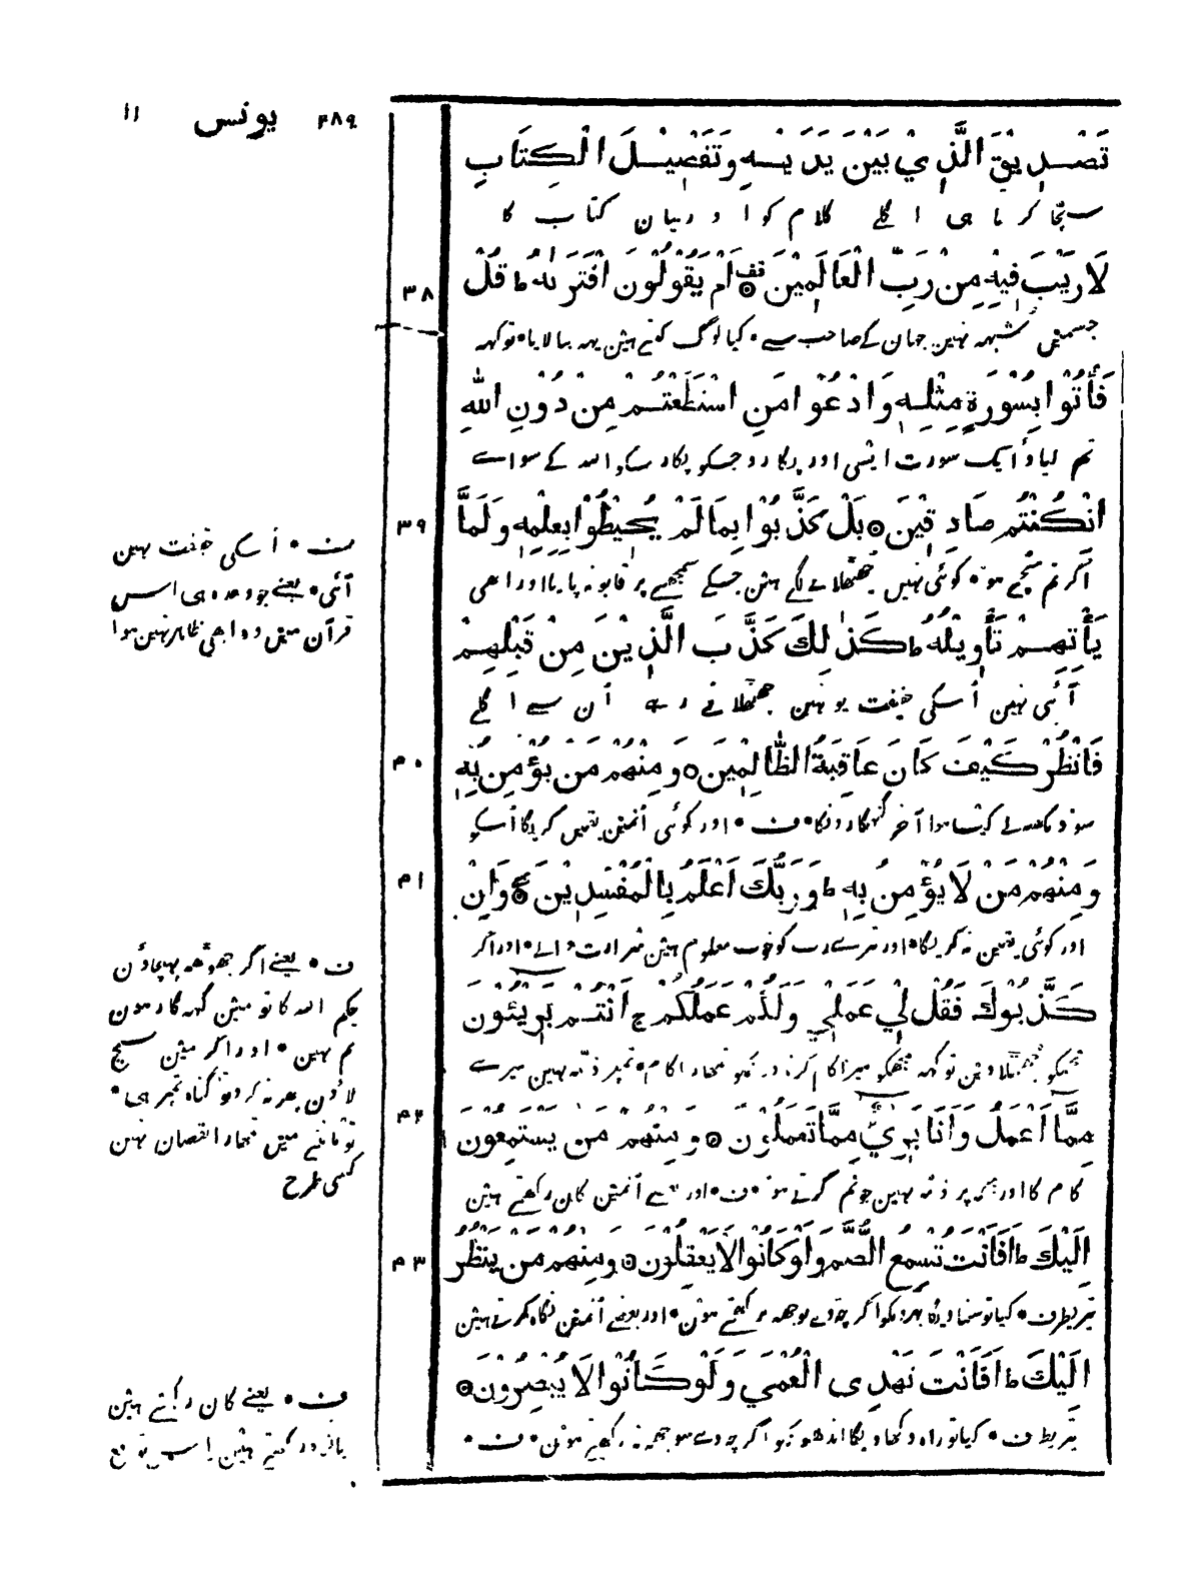 ۳۸۹ یونس ۱۱
تَصْدِيْقَ الَّذِيْ بَيْنَ يَدَيْهِ وَتَفْصِيْلَ الْكِتَابِ
سچا کرتا ہی اگلے کلام کو اور بیان کتاب کا
لَا رَيْبَ فِيْهِ مِنْ رَبِّ الْعَالَمِيْنَ قف اَمْ يَقُوْلُوْنَ افْتَرٰىهُ ط قُلْ
۳۸
جسمیں شبہہ نہین جہان کے صاحب سے • کیا لوگ کہتے ہین یہہ بنا لایا • تو کہہ
فَأْتُوْا بِسُوْرَةٍ مِثْلِهٖ وَادْعُوْا مَنِ اسْتَطَعْتُمْ مِنْ دُوْنِ اللهِ
تم لیاؤ ایک سورت ایسی اور پکارو جسکو پکار سکو اللہ کے سواے
اِنْ كُنْتُمْ صَادِقِيْنَ ٥ بَلْ كَذَّبُوْا بِمَا لَمْ يُحِيْطُوْا بِعِلْمِهٖ وَلَمَّا
۳۹
اگر تم سچے ہو • کوئی نہیں جھٹھلانے لگے ہین جسکے سمجھنے پر قابو نہ پایا اور ابھی
يَأْتِهِمْ تَأْوِيْلُهُ ط كَذٰلِكَ كَذَّبَ الَّذِيْنَ مِنْ قَبْلِهِمْ
آئی نہین اُسکی حقیقت یونہین جھٹھلاتے رہے اُن سے اگلے
فَانْظُرْ كَيْفَ كَانَ عَاقِبَةُ الظَّالِمِيْنَ ٥ وَمِنْهُمْ مَنْ يُؤْمِنُ بِهٖ
۴۰
سو دیکھ لے کیسا ہوا آخر گنہگارونکا • ف • اور کوئی اُنمین یقین کریگا اُسکو
وَمِنْهُمْ مَنْ لَا يُؤْمِنُ بِهٖ ط وَرَبُّكَ اَعْلَمُ بِالْمُفْسِدِيْنَ ع وَاِنْ
۴۱
اور کوئی یقین نہ کریگا • اور تیرے رب کو خوب معلوم ہین شرارت والے • اور اگر
كَذَّبُوْكَ فَقُلْ لِيْ عَمَلِيْ وَلَكُمْ عَمَلُكُمْ ج اَنْتُمْ بَرِيْئُوْنَ
تجھکو جھٹھلاوین تو کہہ مجھکو میرا کام کرنا اور تمکو تمھارا کام • تمپر ذمہ نہین میرے
مِمَّا اَعْمَلُ وَاَنَا بَرِيْءٌ مِمَّا تَعْمَلُوْنَ ٥ وَمِنْهُمْ مَنْ يَسْتَمِعُوْنَ
۴۲
کام کا اور مجھ پر ذمہ نہین جو تم کرتے ہو • ف • اور بعضے اُنمین کان رکھتے ہین
اِلَيْكَ ط اَفَاَنْتَ تُسْمِعُ الصُّمَّ وَلَوْ كَانُوْا لَا يَعْقِلُوْنَ ٥ وَمِنْهُمْ مَنْ يَنْظُرُ
۴۳
تیریطرف • کیا تو سناویگا بہرونکو اگرچہ وے بوجھہ نہ رکھتے ہون • اور بعضے اُنمین نگاہ کرتے ہین
اِلَيْكَ ط اَفَاَنْتَ تَهْدِى الْعُمْيَ وَلَوْ كَانُوْا لَا يُبْصِرُوْنَ ٥
تیریطرف • کیا تو راہ دکھاویگا اندھونکو اگرچہ وے سوجھہ نہ رکھتے ہون • ف •
ف • اُسکی حقیقت نہین
آئی • یعنے جو وعدہ ہی اس
قرآن مین وہ ابھی ظاہر نہین ہوا
ف • یعنے اگر جھوٹھہ پہنچاؤن
حکم اللہ کا تو مین گنہگار ہون
تم نہین • اور اگر مین سچ
لاؤن پھر نہ کرو تو گناہ تمپر ہی •
تو ماننے مین تمھارا نقصان نہین
کسی طرح
ف • یعنے کان رکھتے ہین